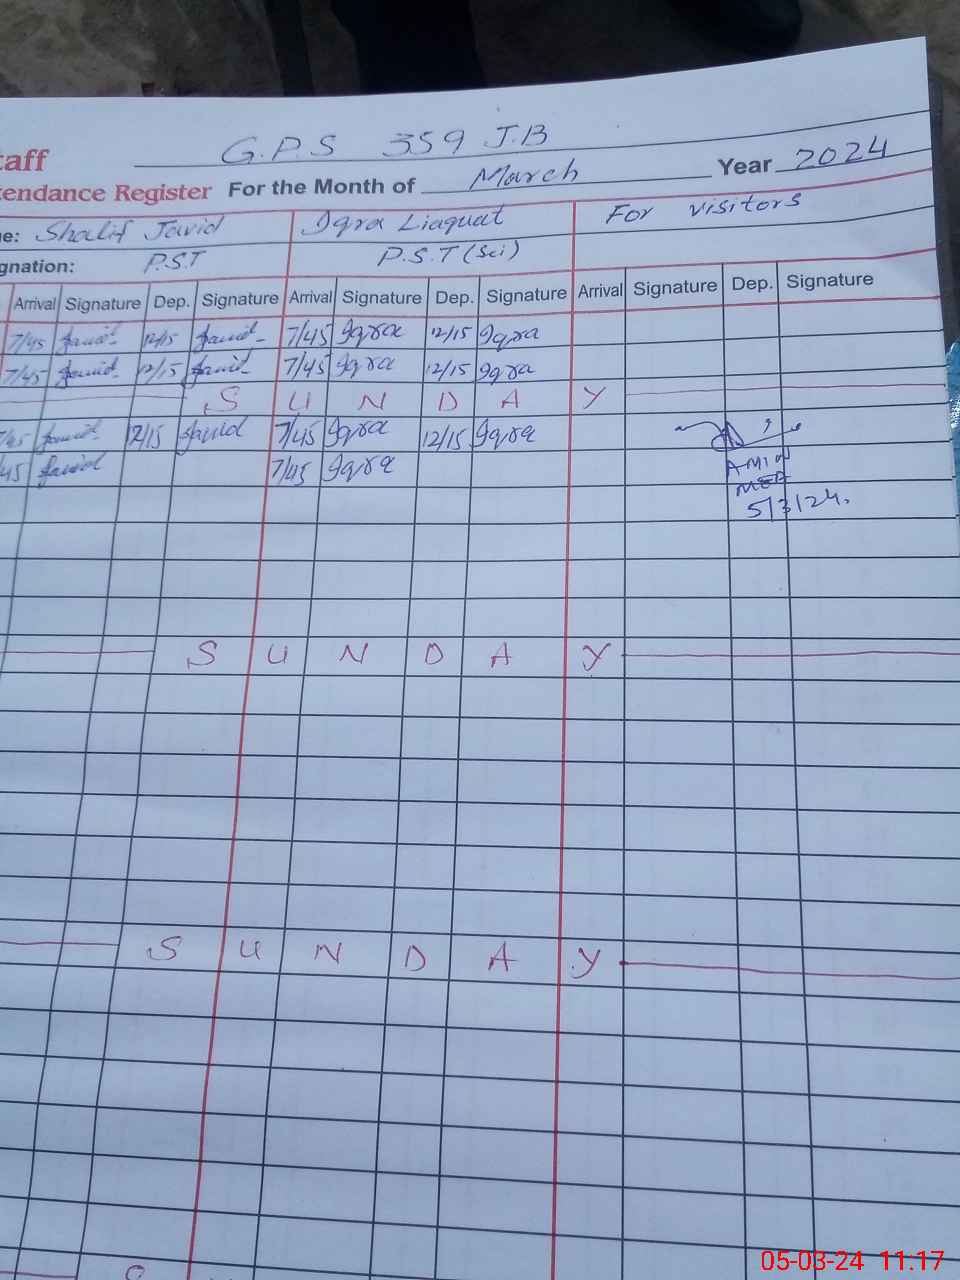 taff
G.P.S 359 J.B
tendance Register For the Month of March Year 2024
e: Shalif Javid Iqra Liaquat For visitors
gnation: P.S.T P.S.T (Sci)
Arrival Signature Dep. Signature Arrival Signature Dep. Signature Arrival Signature Dep. Signature
7/45 Javid 12/15 Javid 7/45 Iqra 12/15 Iqra
7/45 Javid 12/15 Javid 7/45 Iqra 12/15 Iqra
S U N D A Y
7/45 Javid 12/15 Javid 7/45 Iqra 12/15 Iqra
45 Javid 7/45 Iqra
AMIN
MEA
5/3/24.
S U N D A Y
S U N D A Y
S
05-03-24 11.17